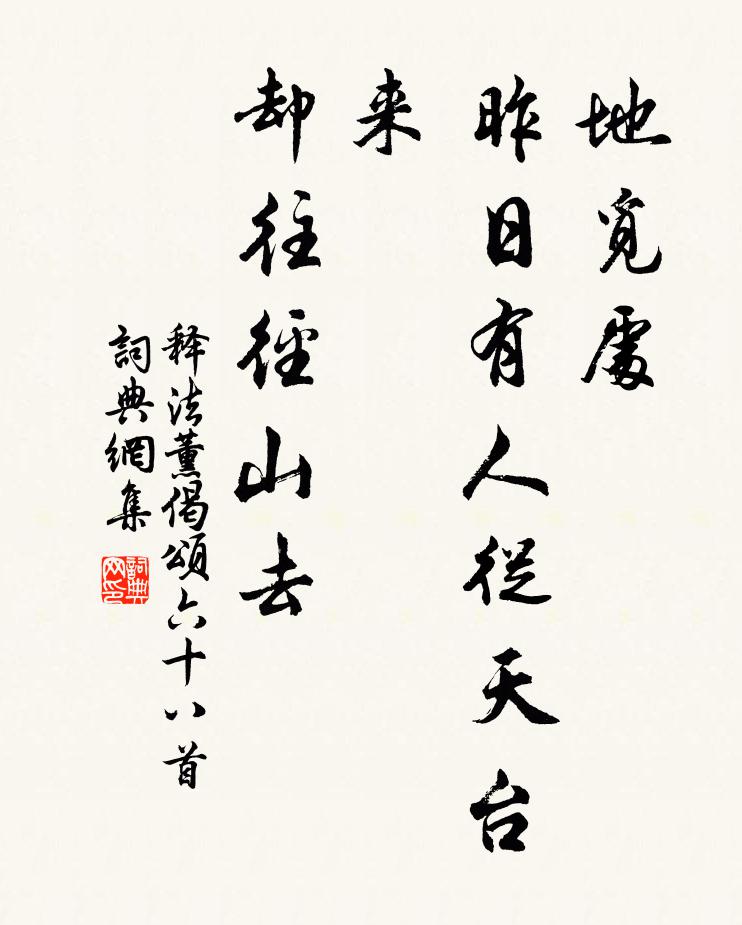 地覓處
昨日有人從天台
来
却往徑山去
释法薰偈頌六十八首
詞典網集
詞典网印